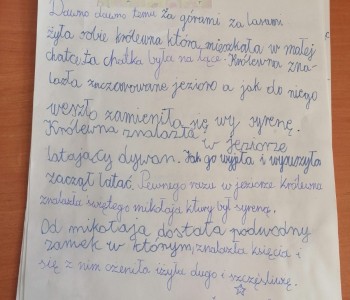 Dawno dawno temu za górami za lasami
żyła sobie królewna która mieszkała w małej
chatce ta chatka była na łące. Królewna zna-
lazła zaczarowane jezioro a jak do niego
weszło zamieniła się wy syrenę.
Królewna znalazła w jeziorze
latający dywan. Jak go wyjęła i wysuszyła
zaczął latać. Pewnego razu w jeziorze królewna
znalazła świętego mikołaja ktury był syreną.
Od mikołaja dostała podwodny
zamek w którym znalazła księcia i
się z nim czeniła iżyłu długo i szczęśliwie.